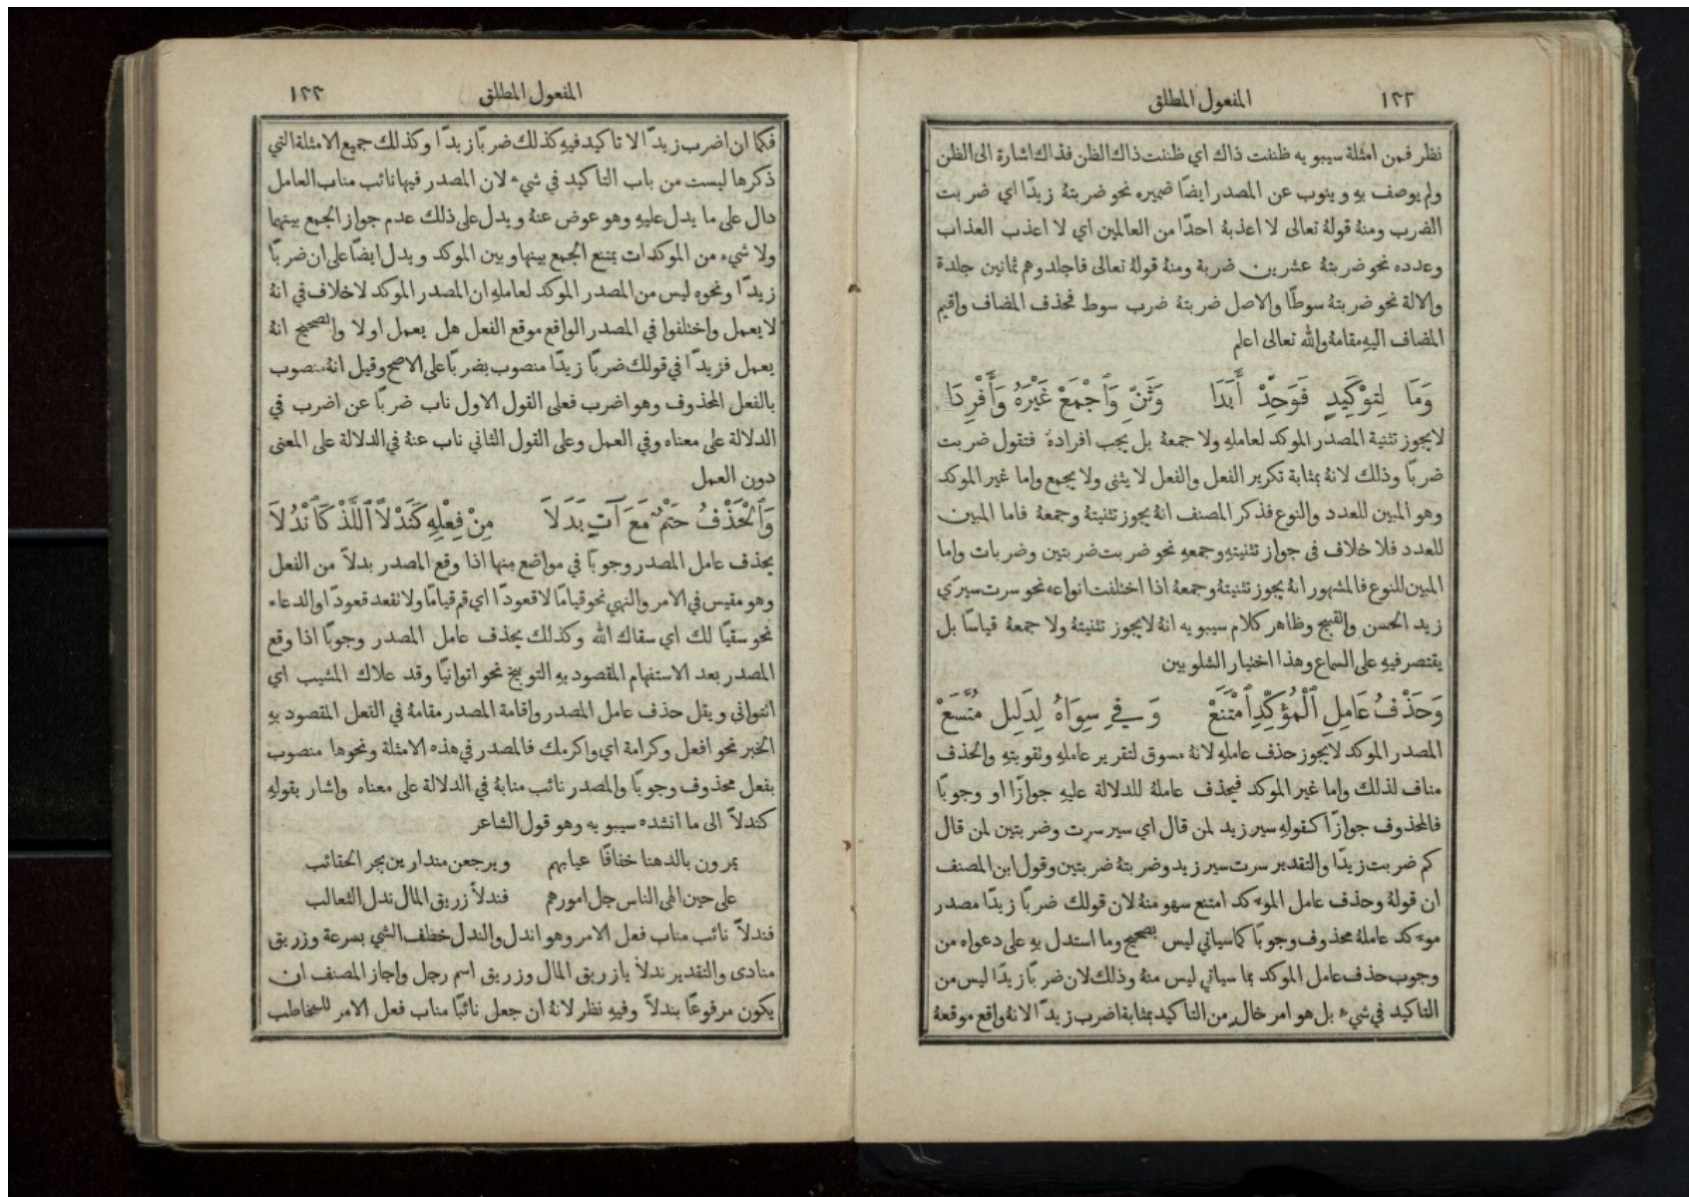 ١٢٢ المفعول المطلق
نظر فمن امثلة سيبويه ظننت ذاك اي ظننت ذاك الظن فذاك اشارة الى الظن
ولم يوصف بهِ وينوب عن المصدر ايضًا ضميره نحو ضربتهُ زيدًا اي ضربت
الضرب ومنهُ قولهُ تعالى لا اعذبهُ احدًا من العالمين اي لا اعذب العذاب
وعدده نحو ضربتهُ عشرين ضربة ومنهُ قولهُ تعالى فاجلدوهم ثمانين جلدة
والالة نحو ضربتهُ سوطًا والاصل ضربتهُ ضرب سوط فحذف المضاف واقيم
المضاف اليهِ مقامهُ والله تعالى اعلم
وَمَا لِتَوْكِيدٍ فَوَحِّدْ أَبَدَا وَثَنِّ وَٱجْمَعْ غَيْرَهُ وَأَفْرِدَا
لايجوز تثنية المصدر الموكد لعاملهِ ولا جمعهُ بل يجب افرادهُ فتقول ضربت
ضربًا وذلك لانهُ بمثابة تكرير الفعل والفعل لا يثنى ولا يجمع واما غير الموكد
وهو المبين للعدد والنوع فذكر المصنف انهُ يجوز تثنيتهُ وجمعهُ فاما المبين
للعدد فلا خلاف في جواز تثنيتهِ وجمعهِ نحو ضربت ضربتين وضربات واما
المبين للنوع فالمشهور انهُ يجوز تثنيتهُ وجمعهُ اذا اختلفت انواعه نحو سرت سيرَي
زيد الحسن والقبيح وظاهر كلام سيبويه انهُ لايجوز تثنيتهُ ولا جمعهُ قياسًا بل
يقتصر فيهِ على السماع وهذا اختيار الشلوبين
وَحَذْفُ عَامِلِ ٱلْمُؤَكِّدِ ٱمْتَنَعْ وَفِي سِوَاهُ لِدَلِيلٍ مُتَّسَعْ
المصدر الموكد لايجوز حذف عاملهِ لانهُ مسوق لتقرير عاملهِ وتقويتهِ والحذف
مناف لذلك واما غير الموكد فيحذف عاملهُ للدلالة عليهِ جوازًا او وجوبًا
فالمحذوف جوازًا كقولهِ سير زيد لمن قال اي سير سرت وضربتين لمن قال
كم ضربت زيدًا والتقدير سرت سير زيد وضربتهُ ضربتين وقول ابن المصنف
ان قولهُ وحذف عامل الموءكد امتنع سهو منهُ لان قولك ضربًا زيدًا مصدر
موءكد عاملهُ محذوف وجوبًا كما سياتي ليس بصحيح وما استدل بهِ على دعواه من
وجوب حذف عامل الموكد بما سياتي ليس منهُ وذلك لان ضربًا زيدًا ليس من
التاكيد في شيء بل هو امر خالٍ من التاكيد بمثابة اضرب زيدًا لانهُ واقع موقعهُ
المفعول المطلق ١٢٣
فكما ان اضرب زيدًا لا تاكيد فيهِ كذلك ضربًا زيدًا وكذلك جميع الامثلة التي
ذكرها ليست من باب التاكيد في شيء لان المصدر فيها نائب مناب العامل
دال على ما يدل عليهِ وهو عوض عنهُ ويدل على ذلك عدم جواز الجمع بينهما
ولا شيء من الموكدات يمتنع الجمع بينها وبين الموكد ويدل ايضًا على ان ضربًا
زيدًا ونحوه ليس من المصدر الموكد لعاملهِ ان المصدر الموكد لا خلاف في انهُ
لا يعمل واختلفوا في المصدر الواقع موقع الفعل هل يعمل اولا والصحيح انهُ
يعمل فزيدًا في قولك ضربًا زيدًا منصوب بضربًا على الاصح وقيل انهُ منصوب
بالفعل المحذوف وهو اضرب فعلى القول الاول ناب ضربًا عن اضرب في
الدلالة على معناه وفي العمل وعلى القول الثاني ناب عنهُ في الدلالة على المعنى
دون العمل
وَٱلْحَذْفُ حَتْمٌ مَعَ آتٍ بَدَلَا مِنْ فِعْلِهِ كَنَدْلًا ٱللَّذْ كَٱنْدُلَا
يحذف عامل المصدر وجوبًا في مواضع منها اذا وقع المصدر بدلًا من الفعل
وهو مقيس في الامر والنهي نحو قيامًا لا قعودًا اي قم قيامًا ولا تقعد قعودًا والدعاء
نحو سقيًا لك اي سقاك الله وكذلك يحذف عامل المصدر وجوبًا اذا وقع
المصدر بعد الاستفهام المقصود بهِ التوبيخ نحو اتوانيًا وقد علاك المشيب اي
اتتوانى ويقل حذف عامل المصدر واقامة المصدر مقامهُ في الفعل المقصود بهِ
الخبر نحو افعل وكرامة اي واكرمك فالمصدر في هذه الامثلة ونحوها منصوب
بفعل محذوف وجوبًا والمصدر نائب منابهُ في الدلالة على معناه واشار بقولهِ
كندلًا الى ما انشده سيبويه وهو قول الشاعر
يمرون بالدهنا خفافًا عيابهم ويرجعن من دارين بجر الحقائب
على حين الهى الناس جل امورهم فندلًا زريق المال ندل الثعالب
فندلًا نائب مناب فعل الامر وهو اندل والندل خطف الشي بسرعة وزريق
منادى والتقدير ندلًا يا زريق المال وزريق اسم رجل واجاز المصنف ان
يكون مرفوعًا بندلًا وفيهِ نظر لانهُ ان جعل نائبًا مناب فعل الامر للمخاطب